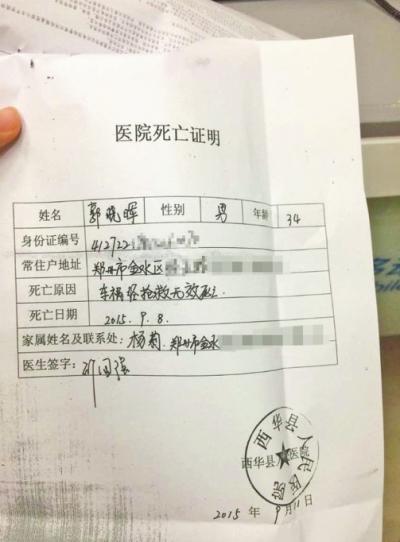 医院死亡证明
姓名 郭晓晖 性别 男 年龄 34
身份证编号 412722
常住户地址 郑州市金水区
死亡原因 车祸经抢救无效死亡.
死亡日期 2015.9.8.
家属姓名及联系处: 杨莉. 郑州市金水
医生签字:
西华县人民医院
西华县人民医院
2015 年 9月11日